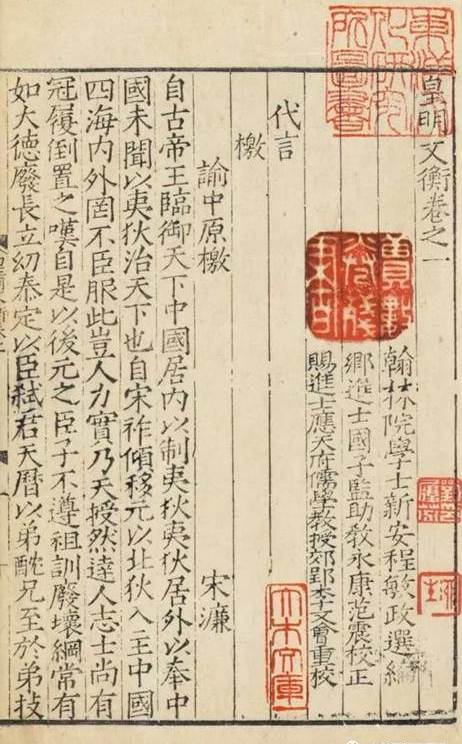 東洋文化研究所圖書
皇明文衡卷之一
翰林院學士新安程敏政選編
鄉進士國子監助教永康范震校正
賜進士應天府儒學教授郊郢李文會重校
大木文庫
代言
檄
諭中原檄 宋濂
自古帝王臨御天下中國居内以制夷狄夷狄居外以奉中
國未聞以夷狄治天下也自宋祚傾移元以北狄入主中國
四海内外罔不臣服此豈人力實乃天授然達人志士尚有
冠履倒置之嘆自是以後元之臣子不遵祖訓廢壞綱常有
如大德廢長立幼泰定以臣弑君天曆以弟酖兄至於弟收